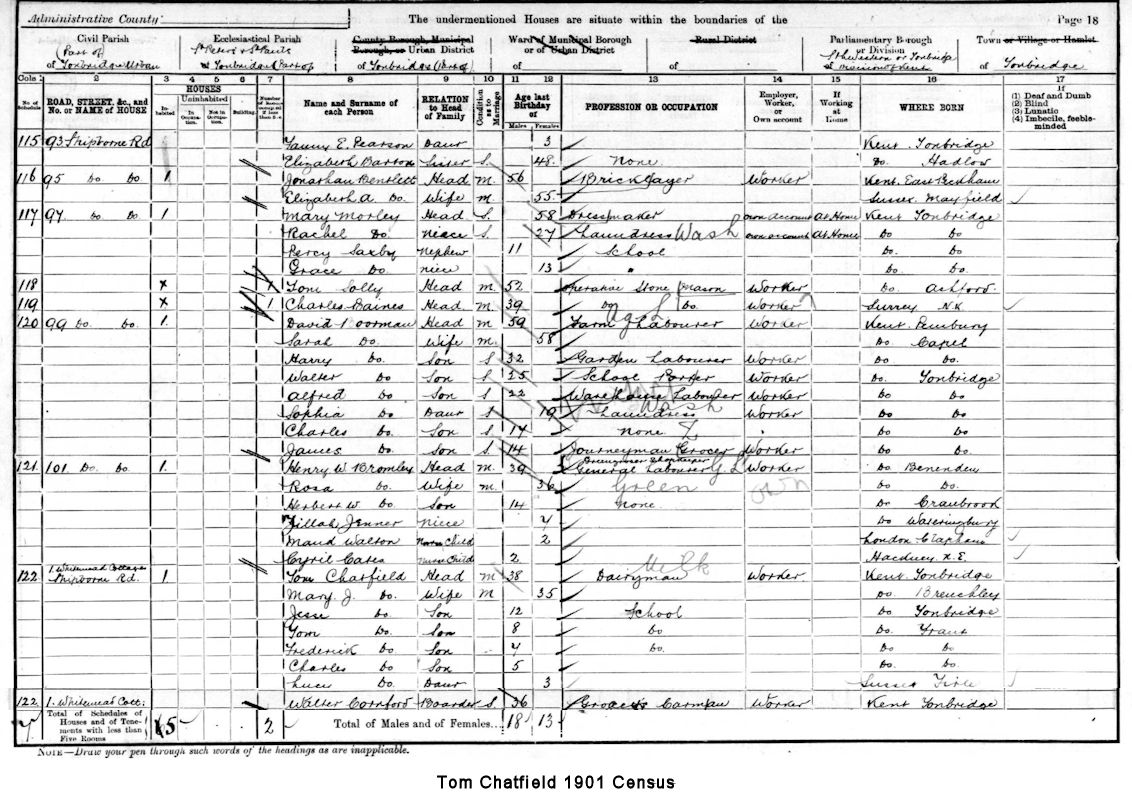 Administrative County The undermentioned Houses are situate within the boundaries of the Page 18
Civil Parish Ecclesiastical Parish County Borough, Municipal Borough, or Urban District Ward of Municipal Borough or of Urban District Rural District Parliamentary Borough or Division Town or Village or Hamlet
Part of of Tonbridge Urban of Tonbridge Part of of Tonbridge (Part of) of of of Tonbridge
Cols. 1 2 3 4 5 6 7 8 9 10 11 12 13 14 15 16 17
No. of Schedule ROAD, STREET, &c., and No. or NAME of HOUSE HOUSES Inhabited Uninhabited In Occupation. Not in Occupation. Building Name and Surname of each Person RELATION to Head of Family Condition as to Marriage Age last Birthday of Males Females PROFESSION OR OCCUPATION Employer, Worker, or Own account If Working at Home WHERE BORN If (1) Deaf and Dumb (2) Blind (3) Lunatic (4) Imbecile, feeble-minded
115 93 Shipborne Rd Fanny E. Pearson Daur 3 Kent Tonbridge
Elizabeth Barton Sister S. 48 None Do. Hadlow
116 95 Do Do. 1 Jonathan Bentlett Head M. 56 Bricklayer Worker Kent East Peckham
Elizabeth A Do. Wife M 55 Sussex Mayfield
117 97 Do Do 1 Mary Morley Head S. 58 Dressmaker own account At Home Kent Tonbridge
Rachel Do. Niece S. 27 Laundress Wash own account At Home Do Do
Percy Saxby Nephew 11 School Do. Do.
Grace Do. Niece 13 " Do. Do.
118 x 1 Tom Solly Head M 52 Operative Stone Mason Worker Do Ashford
119 x 1 Charles Baines Head M. 39 Do Do Worker Surrey N.K
120 99 Do. Do. 1 David Head M 59 Farm Labourer Ag L Worker Kent Pembury
Sarah Do. Wife M. 58 Do Capel
Harry Do. Son S 32 Garden Labourer Worker Do Do.
Walter Do Son S 25 School Porter Worker Do. Tonbridge
Alfred Do Son S 22 Warehouse Labourer Worker Do Do
Sophia Do Daur S 19 Laundress Wash Worker Do Do
Charles Do. Son S 17 None Do Do
James Do. Son S. 14 Journeyman Grocer Worker Do Do
121 101 Do. Do. 1. Henry W Bromley Head M. 39 Greengrocer Shopkeeper General Labourer G L Worker Do Benenden
Rosa Do. Wife M. 36 Green own Do Do.
Herbert W. Do Son 14 None Do Cranbrook
Zillah Jenner Niece 7 Do Wateringbury
Maud Walton Nurse Child 2 London Clapham
Cyril Cates Nurse Child 2 Hackney N.E.
122 1. Whitemead Cottages Shipborne Rd. 1 Tom Chatfield Head M 38 Dairyman Milk Worker Kent Tonbridge
Mary J. Do. Wife M 35 Do. Brenchley
Jesse Do. Son 12 School Do Tonbridge
Tom Do. Son 8 Do Do. Frant
Frederick Do Son 7 Do. Do Do
Charles Do Son 5 Do. Do.
Lucy Do. Daur 3 Sussex Firle
122 1. Whitemead Cott: Walter Cornford Boarder S 36 Grocer's Carman Worker Kent Tonbridge
4 Total of Schedules of Houses and of Tenements with less than Five Rooms 5 2 Total of Males and of Females... 18 13
NOTE—Draw your pen through such words of the headings as are inapplicable.
Tom Chatfield 1901 Census